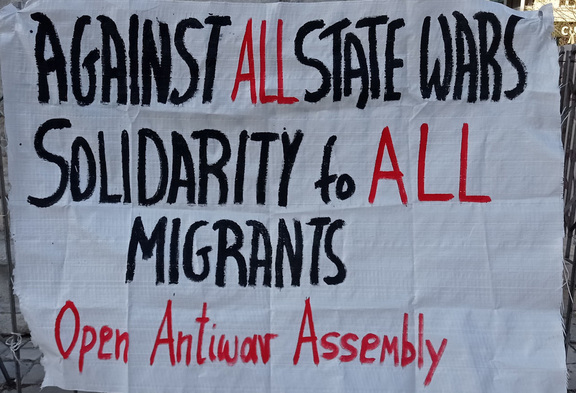 AGAINST ALL STATE WARS
SOLIDARITY to ALL
MIGRANTS
Open Antiwar Assembly